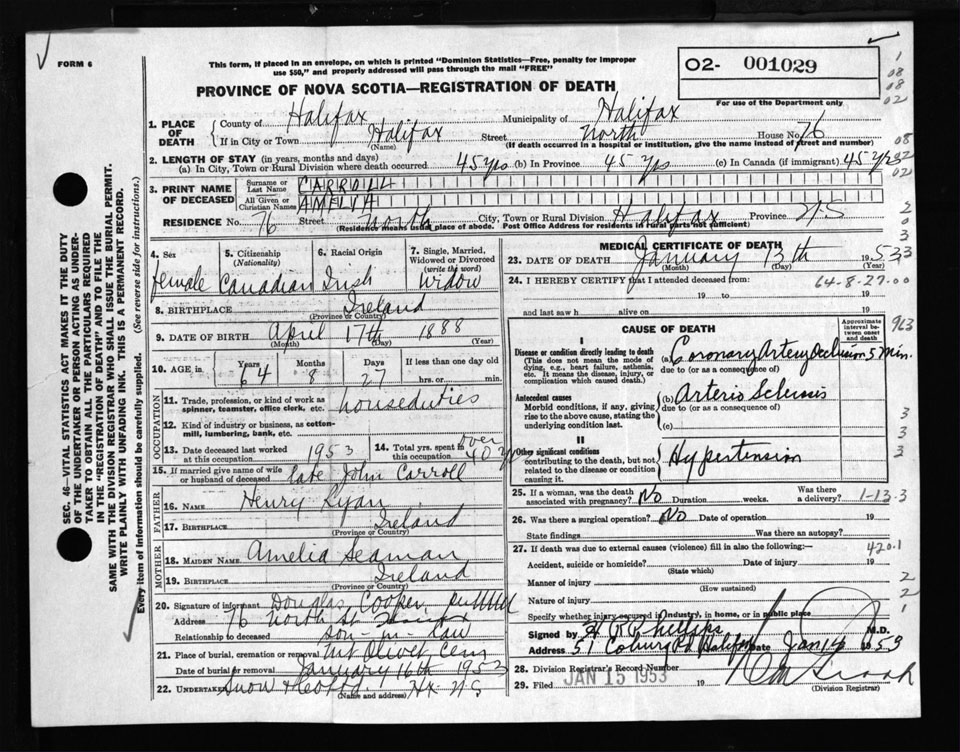 FORM 6
This form, if placed in an envelope, on which is printed "Dominion Statistics—Free, penalty for improper
use $50," and properly addressed will pass through the mail "FREE"
PROVINCE OF NOVA SCOTIA—REGISTRATION OF DEATH
02- 001029
For use of the Department only
1
08
08
02
08
02
02
2
0
3
3
SEC. 46—VITAL STATISTICS ACT MAKES IT THE DUTY
OF THE UNDERTAKER OR PERSON ACTING AS UNDER-
TAKER TO OBTAIN ALL THE PARTICULARS REQUIRED
IN THE "REGISTRATION OF DEATH" AND TO FILE THE
SAME WITH THE DIVISION REGISTRAR WHO SHALL ISSUE THE BURIAL PERMIT.
WRITE PLAINLY WITH UNFADING INK. THIS IS A PERMANENT RECORD.
Every item of information should be carefully supplied. (See reverse side for instructions.)
1. PLACE OF DEATH
County of Halifax Municipality of Halifax
If in City or Town Halifax Street North House No. 76
(Name) (If death occurred in a hospital or institution, give the name instead of street and number)
2. LENGTH OF STAY (in years, months and days)
(a) In City, Town or Rural Division where death occurred 45 yrs (b) In Province 45 yrs (c) In Canada (if immigrant) 45 yrs
3. PRINT NAME OF DECEASED
Surname or Last Name CARROLL
All Given or Christian Names AMELIA
RESIDENCE No. 76 Street North City, Town or Rural Division Halifax Province N.S
(Residence means usual place of abode. Post Office Address for residents in rural parts not sufficient)
4. Sex female
5. Citizenship (Nationality) Canadian
6. Racial Origin Irish
7. Single, Married, Widowed or Divorced (write the word) Widow
8. BIRTHPLACE Ireland
(Province or Country)
9. DATE OF BIRTH April 17th 1888
(Month) (Day) (Year)
10. AGE in Years 64 Months 8 Days 27 If less than one day old hrs. or min.
OCCUPATION
11. Trade, profession, or kind of work as spinner, teamster, office clerk, etc. houseduties
12. Kind of industry or business, as cotton-mill, lumbering, bank, etc.
13. Date deceased last worked at this occupation 1953
14. Total yrs. spent in this occupation over 40 yrs
15. If married give name of wife or husband of deceased late John Carroll
FATHER
16. NAME Henry Ryan
17. BIRTHPLACE Ireland
(Province or Country)
MOTHER
18. MAIDEN NAME Amelia Seaman
19. BIRTHPLACE Ireland
(Province or Country)
20. Signature of informant Douglas Cooper
Address 76 North St
Relationship to deceased son-in-law
21. Place of burial, cremation or removal Mt Olivet Cem
Date of burial or removal January 16th 1953
22. UNDERTAKER Snow Hx. N.S
(Name and address)
MEDICAL CERTIFICATE OF DEATH
23. DATE OF DEATH January 13th 1953
(Month) (Day) (Year)
24. I HEREBY CERTIFY that I attended deceased from:
64-8-27-00
19 to 19
and last saw h alive on 19
CAUSE OF DEATH
Approximate interval between onset and death
963
I
Disease or condition directly leading to death
(This does not mean the mode of dying, e.g., heart failure, asthenia, etc. It means the disease, injury, or complication which caused death.)
(a) Coronary Artery Occlusion 5 min.
due to (or as a consequence of)
Antecedent causes
Morbid conditions, if any, giving rise to the above cause, stating the underlying condition last.
(b) Arterio Sclerosis
due to (or as a consequence of)
(c)
II
Other significant conditions
contributing to the death, but not related to the disease or condition causing it.
Hypertension
3
3
3
3
25. If a woman, was the death associated with pregnancy? No Duration weeks. Was there a delivery?
1-13-3
26. Was there a surgical operation? No Date of operation 19
State findings Was there an autopsy?
27. If death was due to external causes (violence) fill in also the following:—
420.1
Accident, suicide or homicide? Date of injury 19
(State which)
Manner of injury
(How sustained)
Nature of injury
2
2
1
Specify whether injury occurred in industry, in home, or in public place
Signed by Phelps M.D.
Address 51 Coburg Rd Halifax Date Jan 14 1953
28. Division Registrar's Record Number
29. Filed JAN 15 1953 19
(Division Registrar)